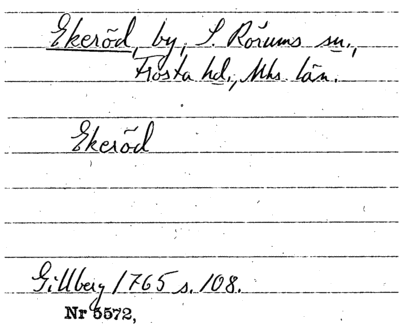 Ekeröd, by, S. Rörums sn.,
Frosta hd., Mhs. län.
Ekeröd
Gillberg 1765 s. 108.
Nr 5572,